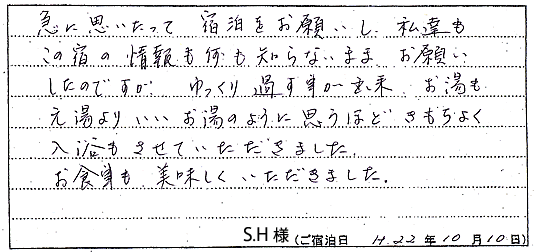 急に思いたって 宿泊をお願いし、私達も
この宿の情報も何も知らないまま お願い
したのですが ゆっくり過す事が出来 お湯も
元湯よりいいお湯のように思うほど きもちよく
入浴もさせていただきました。
お食事も美味しくいただきました。
S.H 様 (ご宿泊日 H.22 年 10 月 10 日)